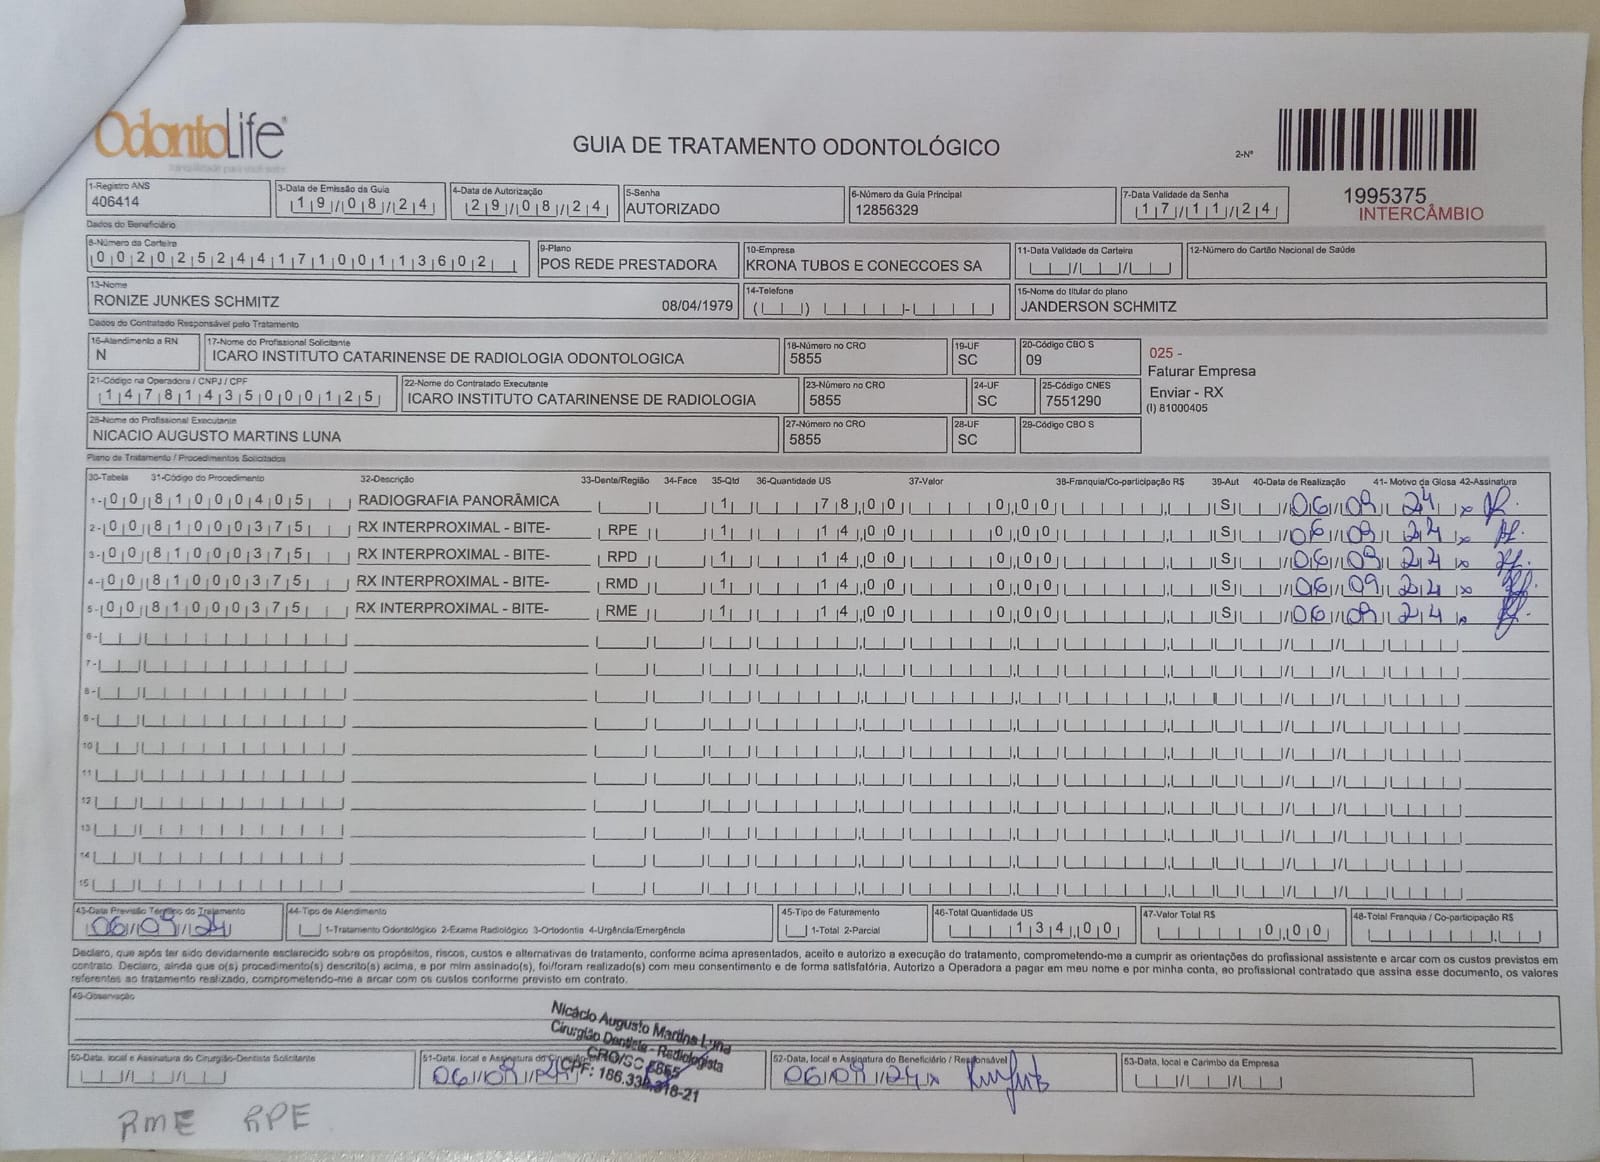 OdontoLife®
GUIA DE TRATAMENTO ODONTOLÓGICO
2-Nº
1995375
INTERCÂMBIO
1-Registro ANS
406414
3-Data de Emissão da Guia
19/08/24
4-Data de Autorização
29/08/24
5-Senha
AUTORIZADO
6-Número da Guia Principal
12856329
7-Data Validade da Senha
17/11/24
Dados do Beneficiário
8-Número da Carteira
00202524417100113602
9-Plano
POS REDE PRESTADORA
10-Empresa
KRONA TUBOS E CONECCOES SA
11-Data Validade da Carteira
12-Número do Cartão Nacional de Saúde
13-Nome
RONIZE JUNKES SCHMITZ 08/04/1979
14-Telefone
15-Nome do titular do plano
JANDERSON SCHMITZ
Dados do Contratado Responsável pelo Tratamento
16-Atendimento a RN
N
17-Nome do Profissional Solicitante
ICARO INSTITUTO CATARINENSE DE RADIOLOGIA ODONTOLOGICA
18-Número no CRO
5855
19-UF
SC
20-Código CBO S
09
025 -
Faturar Empresa
Enviar - RX
(I) 81000405
21-Código na Operadora / CNPJ / CPF
14781435000125
22-Nome do Contratado Executante
ICARO INSTITUTO CATARINENSE DE RADIOLOGIA
23-Número no CRO
5855
24-UF
SC
25-Código CNES
7551290
26-Nome do Profissional Executante
NICACIO AUGUSTO MARTINS LUNA
27-Número no CRO
5855
28-UF
SC
29-Código CBO S
Plano de Tratamento / Procedimentos Solicitados
30-Tabela 31-Código do Procedimento 32-Descrição 33-Dente/Região 34-Face 35-Qtd 36-Quantidade US 37-Valor 38-Franquia/Co-participação R$ 39-Aut 40-Data de Realização 41- Motivo da Glosa 42-Assinatura
1- 00 81000405 RADIOGRAFIA PANORÂMICA 1 78,00 0,00 S 06/09/24 x
2- 00 81000375 RX INTERPROXIMAL - BITE- RPE 1 14,00 0,00 S 06/09/24 x
3- 00 81000375 RX INTERPROXIMAL - BITE- RPD 1 14,00 0,00 S 06/09/24 x
4- 00 81000375 RX INTERPROXIMAL - BITE- RMD 1 14,00 0,00 S 06/09/24 x
5- 00 81000375 RX INTERPROXIMAL - BITE- RME 1 14,00 0,00 S 06/09/24 x
6-
7-
8-
9-
10
11
12
13
14
15
43-Data Previsão Término do Tratamento
06/09/24
44-Tipo de Atendimento
1-Tratamento Odontológico 2-Exame Radiológico 3-Ortodontia 4-Urgência/Emergência
45-Tipo de Faturamento
1-Total 2-Parcial
46-Total Quantidade US
134,00
47-Valor Total R$
0,00
48-Total Franquia / Co-participação R$
Declaro, que após ter sido devidamente esclarecido sobre os propósitos, riscos, custos e alternativas de tratamento, conforme acima apresentados, aceito e autorizo a execução do tratamento, comprometendo-me a cumprir as orientações do profissional assistente e arcar com os custos previstos em
contrato. Declaro, ainda que o(s) procedimento(s) descrito(s) acima, e por mim assinado(s), foi/foram realizado(s) com meu consentimento e de forma satisfatória. Autorizo a Operadora a pagar em meu nome e por minha conta, ao profissional contratado que assina esse documento, os valores
referentes ao tratamento realizado, comprometendo-me a arcar com os custos conforme previsto em contrato.
49-Observação
Nicácio Augusto Martins Luna
Cirurgião Dentista - Radiologista
CRO/SC 5855
50-Data, local e Assinatura do Cirurgião-Dentista Solicitante
51-Data, local e Assinatura do
06/09/24
52-Data, local e Assinatura do Beneficiário / Responsável
06/09/24 x
53-Data, local e Carimbo da Empresa
RME RPE